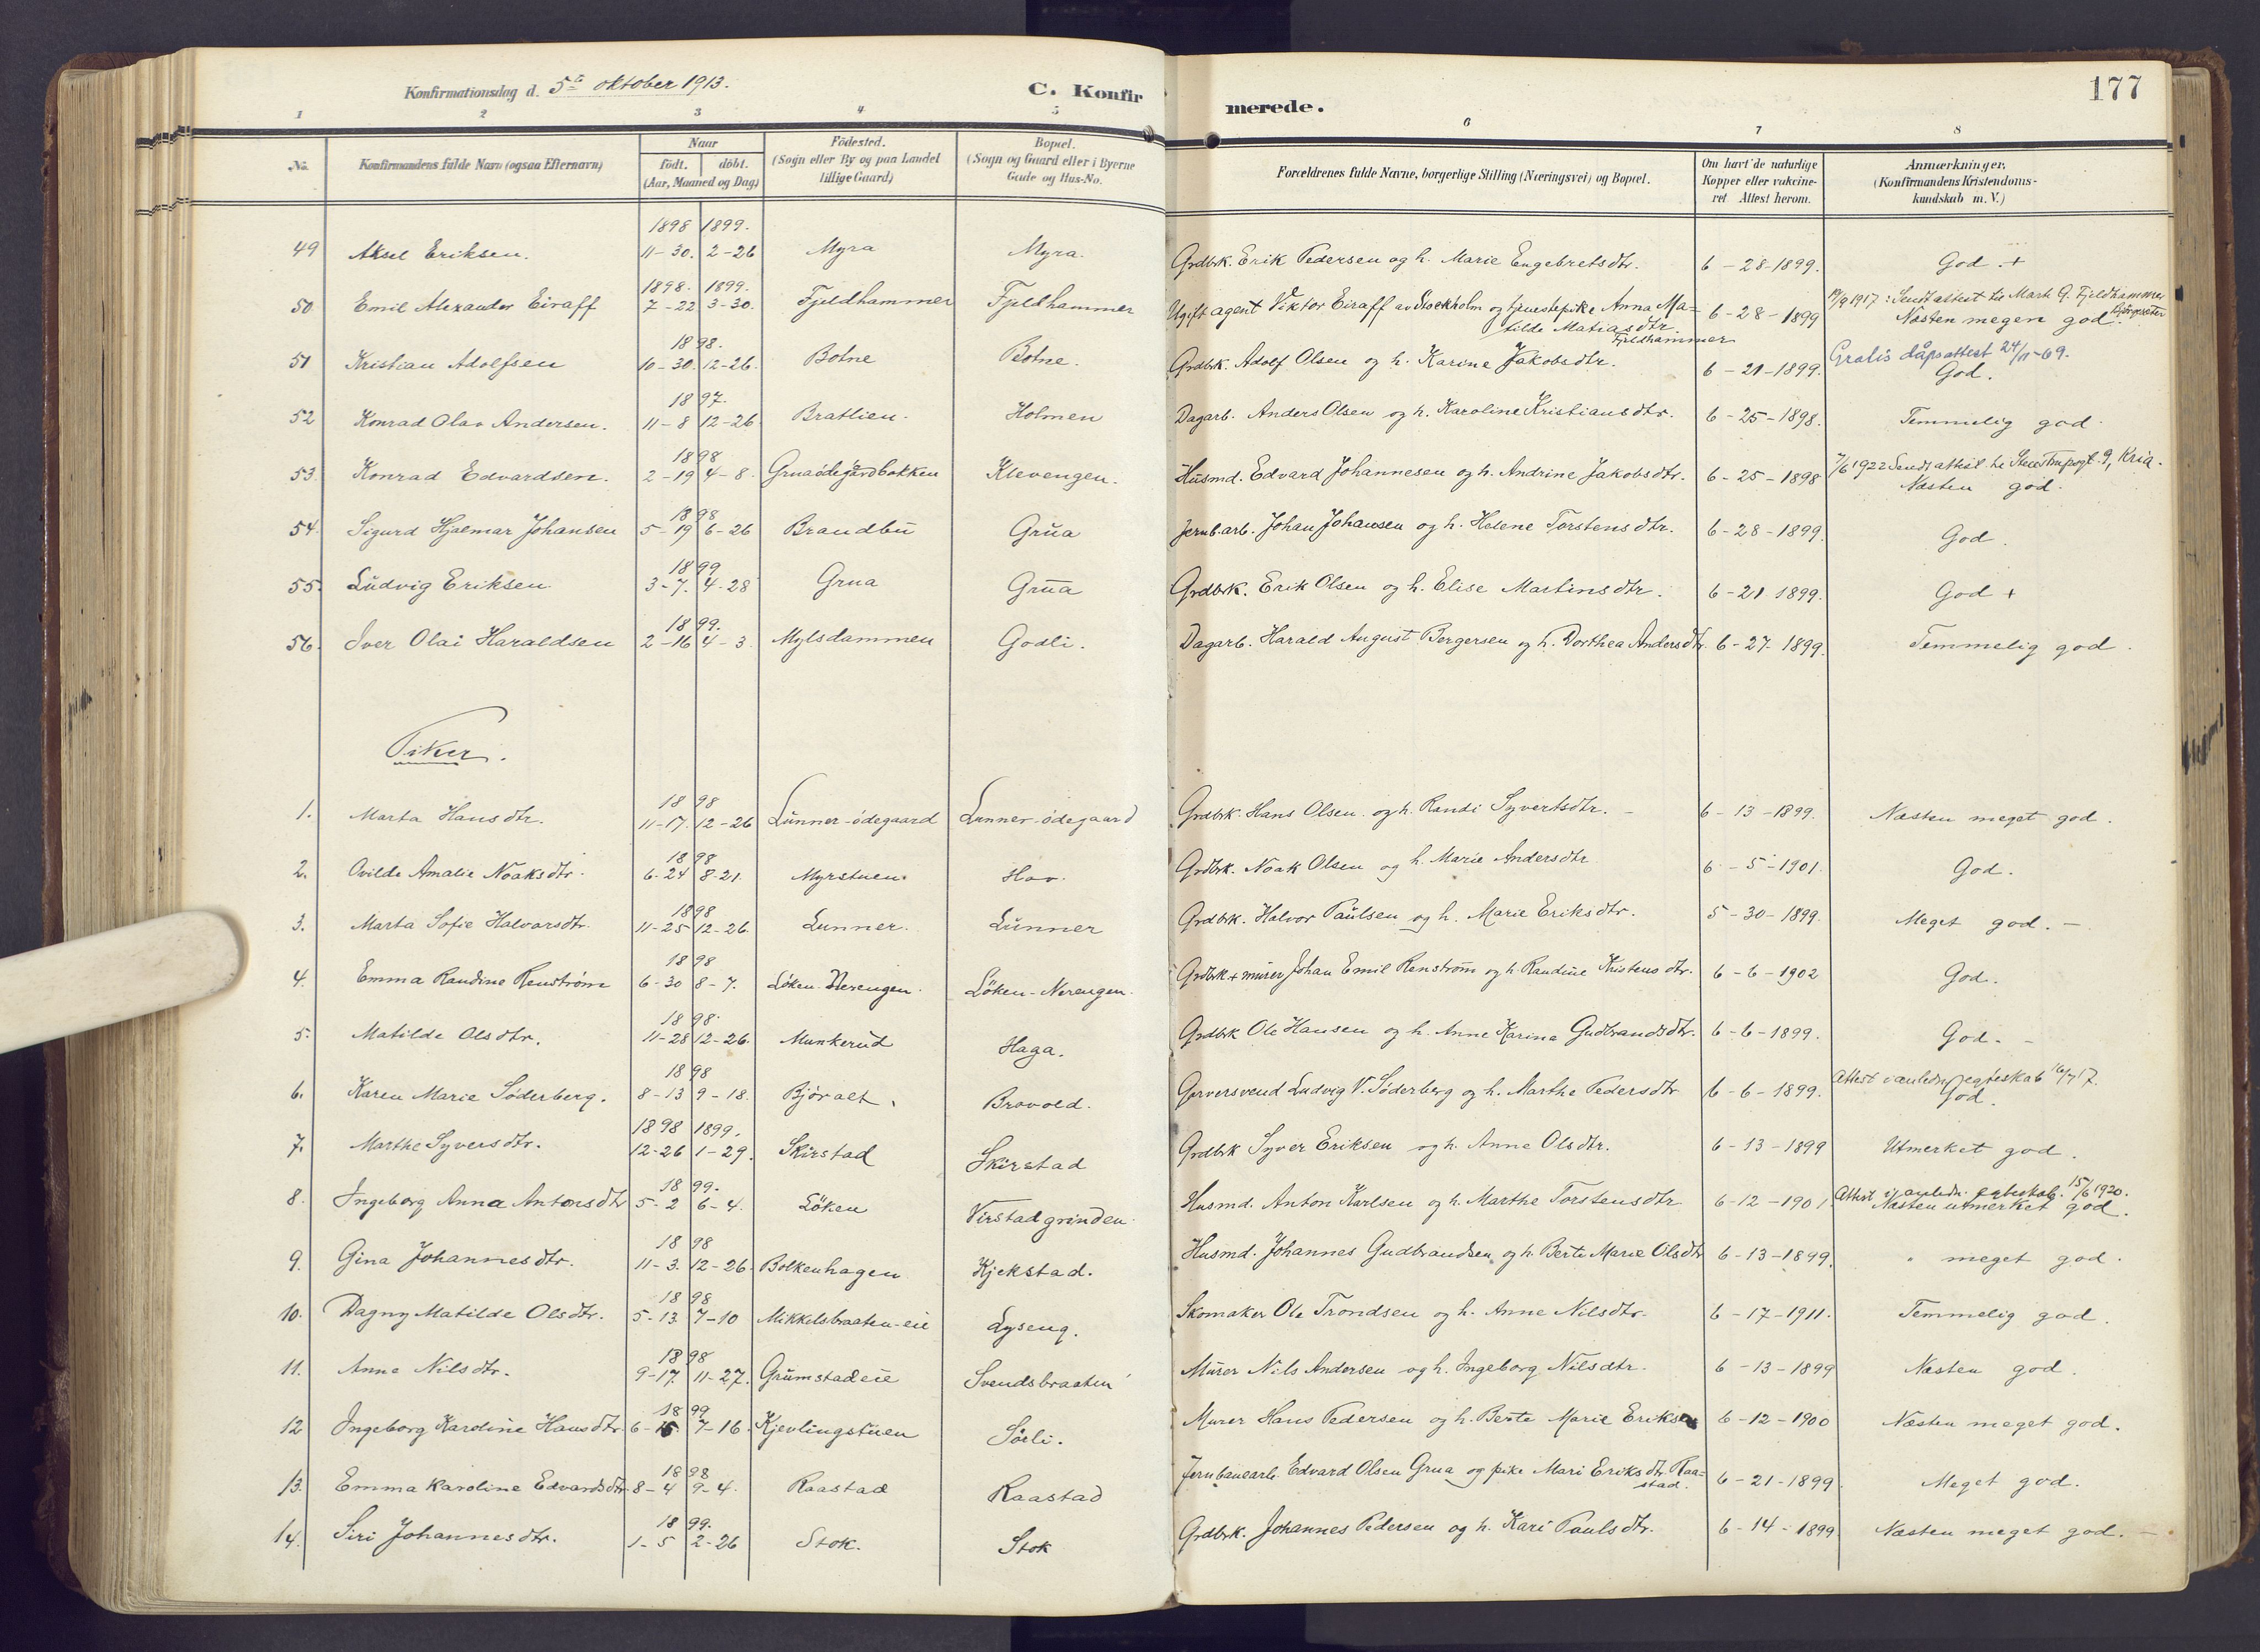 Konfirmationsdag d. 5te oktober 1913. C. Konfirmerede. 177
1 2 3 4 5 6 7 8
No. Konfirmandens fulde Navn (ogsaa Efternavn) Naar födt. döbt. (Aar, Maaned og Dag) Födested. (Sogn eller By og paa Landet tillige Gaard) Bopæl. (Sogn og Gaard eller i Byerne Gade og Hus-No. Forældrenes fulde Navne, borgerlige Stilling (Næringsvei) og Bopæl. Om havt de naturlige Kopper eller vakcineret Attest herom. Anmærkninger. (Konfirmandens Kristendomskundskab m. V.)
1898 1899.
49 Aksel Eriksen. 11-30. 2-26 Myra Myra. Grdbrk. Erik Pedersen og h. Marie Engebretsdtr. 6-28-1899. God.+
1898. 1899. 19/9 1917: Sendt attest til Mart. G. Fjeldhammer
50. Emil Alexander Eiraff 7-22 3-30. Fjeldhammer Fjeldhammer Ugift agent Viktor Eiraff av Stockholm og tjenestepike Anna Ma= 6-28-1899 Næsten megen god.
tilde Matiasdtr. Fjeldhammer
1898. Gratis dåpsattest 24/11-69.
51 Kristian Adolfsen 10-30. 12-26. Botne Botne. Grdbrk. Adolf Olsen og h. Karine Jakobsdtr. 6-21-1899. God.
1897.
52 Konrad Olav Andersen. 11-8 12-26. Bratlien. Holmen Dagarb. Anders Olsen og h. Karoline Kristiansdtr. 6-25-1898. Temmelig god.
1898 7/6 1922 Sendt attest til 9, Kria.
53. Konrad Edvardsen. 2-19 4-8. Gruaödegårdbakken Klevengen. Husmd. Edvard Johannesen og h. Andrine Jakobsdtr. 6-25-1898 Næsten god.
1898
54. Sigurd Hjalmar Johansen 5-19 6-26 Brandbu Grua Jernb.arb. Johan Johansen og h. Helene Torstensdtr. 6-28-1899. God.
1899
55. Ludvig Eriksen 3-7. 4-28 Grua Grua Grdbrk. Erik Olsen og h. Elise Martinsdtr. 6-21 1899. God +
1899.
56. Iver Olai Haraldsen 2-16 4-3 Mylsdammen Godli. Dagarb. Harald August Bergersen og h. Dorthea Andersdtr. 6-27-1899. Temmelig god.
Piker.
1898
1. Marta Hansdtr. 11-17. 12-26 Lunner-ödegaard Lunner-ödegaard Grdbrk. Hans Olsen. og h. Randi Syvertsdtr. 6-13-1899. Næsten meget god.
1898
2. Ovilde Amalie Noaksdtr. 6-24 8-21. Myrstuen. Hov. Grdbrk. Noak Olsen og h. Marie Andersdtr 6-5-1901. God.
1898
3. Marta Sofie Halvorsdtr. 11-25 12-26. Lunner. Lunner Grdbrk. Halvor Paulsen og h. Marie Eriksdtr. 5-30-1899. Meget god.-
1898
4. Emma Randine Renström 6-30 8-7. Löken-Nerengen. Löken-Nerengen. Grdbrk + murer Johan Emil Renström og h. Randine Kristensdtr. 6-6-1902 God.
1898.
5. Matilde Olsdtr. 11-28 12-26. Munkerud Haga. Grdbrk Ole Hansen og h. Anne Karine Gudbrandsdtr. 6-6-1899. God.-
1898 Attest i anledn. egteskab 16/7 17.
6. Karen Marie Söderberg. 8-13 9-18. Björalt. Brovold. Garversvend Ludvig V. Söderberg og h. Marthe Pedersdtr 6-6-1899. God.
1898 1899.
7. Marthe Syversdtr. 12-26 1-29. Skirstad Skirstad Grdbrk Syver Eriksen og h. Anne Olsdtr. 6-13-1899 Utmerket god.
1899. Attest i anledn. egteskab. 15/6 1920.
8. Ingeborg Anna Antonsdtr 5-2 6-4. Löken Virstadgrinden. Husmd. Anton Karlsen og h. Marthe Torstensdtr 6-12-1901. Næsten utmerket god.
1898
9. Gina Johannesdtr. 11-3. 12-26. Bolkenhagen Kjekstad. Husmd. Johannes Gudbrandsen og h. Berte Marie Olsdtr 6-13-1899. " meget god.
1898
10. Dagny Matilde Olsdtr. 5-13. 7-10 Mikkelsbraaten-eie Lyseng. Skomaker Ole Trondsen og h. Anne Nilsdtr. 6-17-1911. Temmelig god.
1898
11. Anne Nilsdtr. 9-17. 11-27. Grumstadeie Svendsbraaten Murer Nils Andersen og h. Ingeborg Nilsdtr. 6-13-1899 Næsten god.
1899
12 Ingeborg Karoline Hansdtr. 6-15. 7-16. Kjevlingstuen Sörli. Murer Hans Pedersen og h. Berte Marie Eriksen 6-12-1900 Næsten meget god.
1898
13. Emma Karoline Edvardsdtr. 8-4 9-4. Raastad Raastad Jernbanearb. Edvard Olsen Grua og pike Mari Eriksdtr. Raa= 6-21-1899. Meget god.
stad.
1899.
14. Siri Johannesdtr. 1-5 2-26 Stok. Stok Grdbrk. Johannes Pedersen og h. Kari Paulsdtr. 6-14-1899 Næsten meget god.-